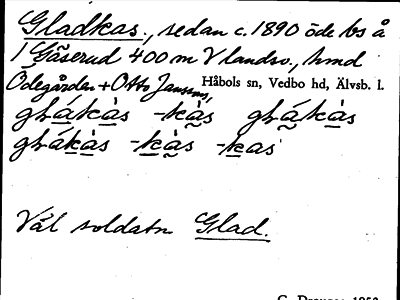 Gladkas., sedan c. 1890 öde bs å
1 Gåserud 400 m V landsv., hmd
Ödegården + Otto Jansson,
Håbols sn, Vedbo hd, Älvsb. l.
glákàs -kàs glákàs
glákàs -kàs -kas
Väl soldatn Glad.